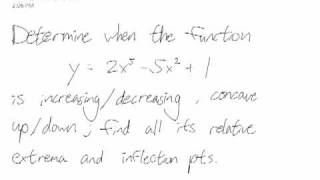 2:06 PM
Determine when the function
y = 2x⁵ - 5x² + 1
is increasing/decreasing, concave
up/down; find all its relative
extrema and inflection pts.